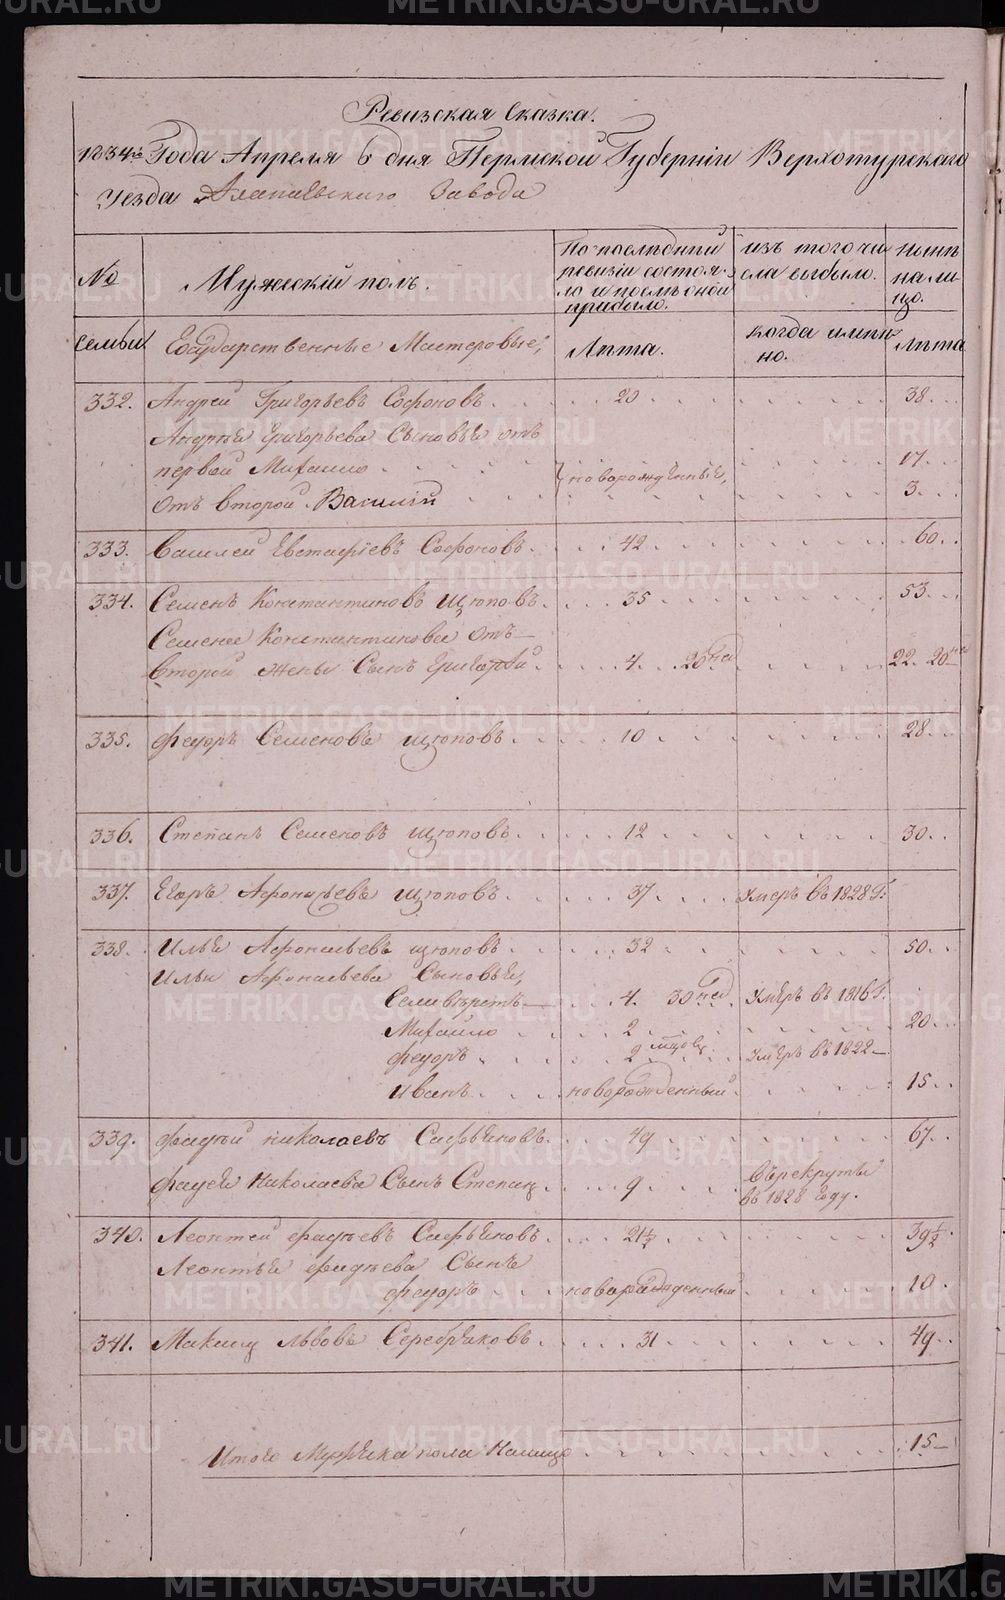 Ревизская Сказка.
1834го Года Апреля 6 дня Пермской Губернiи Верхотурскаго
Уезда Алапаевскаго Завода
№ семьи
Мужескiй полъ.
По последнѣй ревизiи состояло и послѣ оной прибыло.
изъ того числа выбыло.
нынѣ на лицо.
Государственные Мастеровые,
Лѣта.
когда именно.
Лѣта
332. Андрей Григорьевъ Софоновъ 20 38
Андрѣя Григорьева Сыновья отъ
первой Михаило новорожденные, 17
отъ второй Василiй 3
333. Василей Евстафiевъ Софоновъ 42 60
334. Семенъ Константиновъ Щюповъ 35 53
Семена Константинова отъ
второй жены Сынъ Григорiй 4. 20 нед 22. 20 не
335. Федоръ Семеновъ Щюповъ 10 28
336. Степанъ Семеновъ Щюповъ 12 30
337. Егоръ Афонасьевъ Щюповъ 37 Умеръ въ 1828 г.
338. Илья Афонасьевъ Щюповъ 32 50
Ильи Афонасьева Сыновья,
Селиверстъ 4. 30 нед Умеръ въ 1816 г.
Михайло 2 20
Федоръ 2 мцовъ Умеръ въ 1822
Иванъ новорожденный 15
339. Фадѣй Николаевъ Сафьяновъ 49 67
Фадея Николаева Сынъ Степанъ 9 въ рекруты
въ 1828 году.
340. Леонтей Фадѣевъ Сафьяновъ 21½ 39½
Леонтья Фадѣева Сынъ
Федоръ новорожденный 10
341. Максимъ Львовъ Серебряковъ 31 49
Итого Мужеска пола налицо 15
METRIKI.GASO-URAL.RU